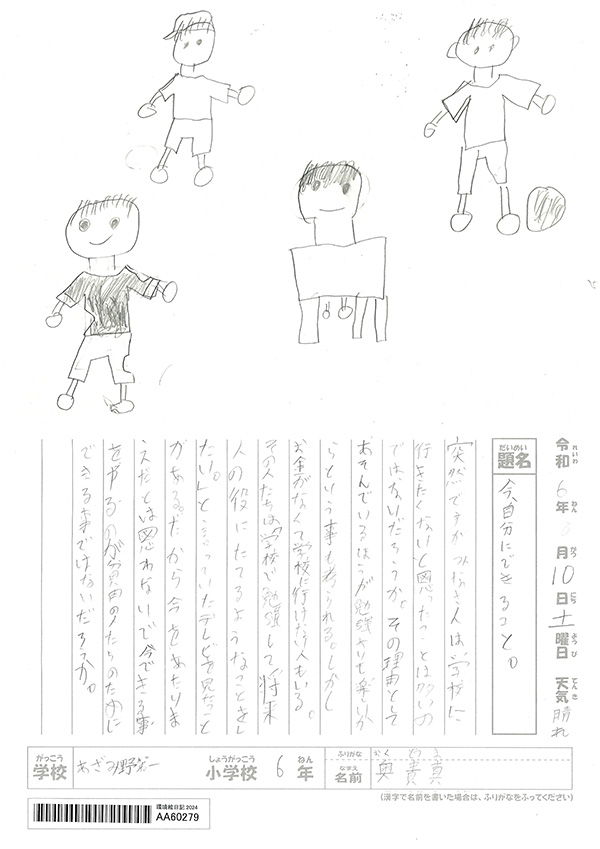 令和6年8月10日土曜日 天気晴れ
れいわ ねん がつ にち ようび てんき
だいめい
題名 今、自分にできること。
突然ですがみなさんは、学校に
行きたくないと思ったことは多いの
ではないだろうか。その理由として
あそんでいるほうが勉強よりも楽しいか
らという事も考えられる。しかし
お金がなくて学校に行けない人もいる。
その人たちは「学校で勉強して将来
人の役にたてるようなことをし
たい。」と言っていたテレビを見たこと
がある。だから今をあたりま
えだとは思わないで今できる事
をやるのが貧困の人たちのために
できる事ではないだろうか。
がっこう しょうがっこう ねん ふりがな
学校 あざみ野第一 小学校 6年
なまえ
名前 奥 貴真
(漢字で名前を書いた場合は、ふりがなをふってください)
環境絵日記2024
AA60279